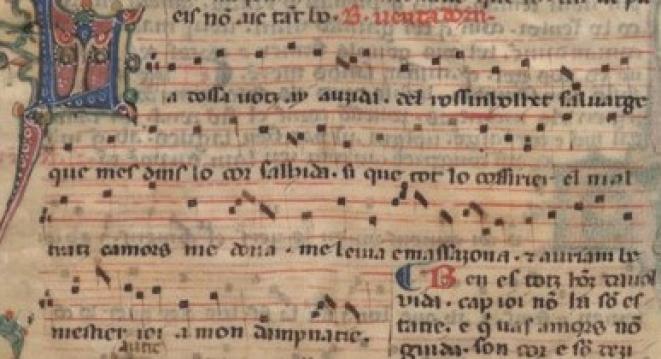 eis nō .ue tar lo. B. uentadorn.
La dossa uotz ay auzida. del rossinholhet saluatge
que mes dins lo cor salhida. si que tot lo cossirier el mal
tratz camors me dona. me leuia e massazona. & auriam be
mestier ioi a mon dampnatie.
Ben es totz hōr
uida. cap ioi nō la sō es
tatie. e q̄ uas amors nō
guida. son cor e sō